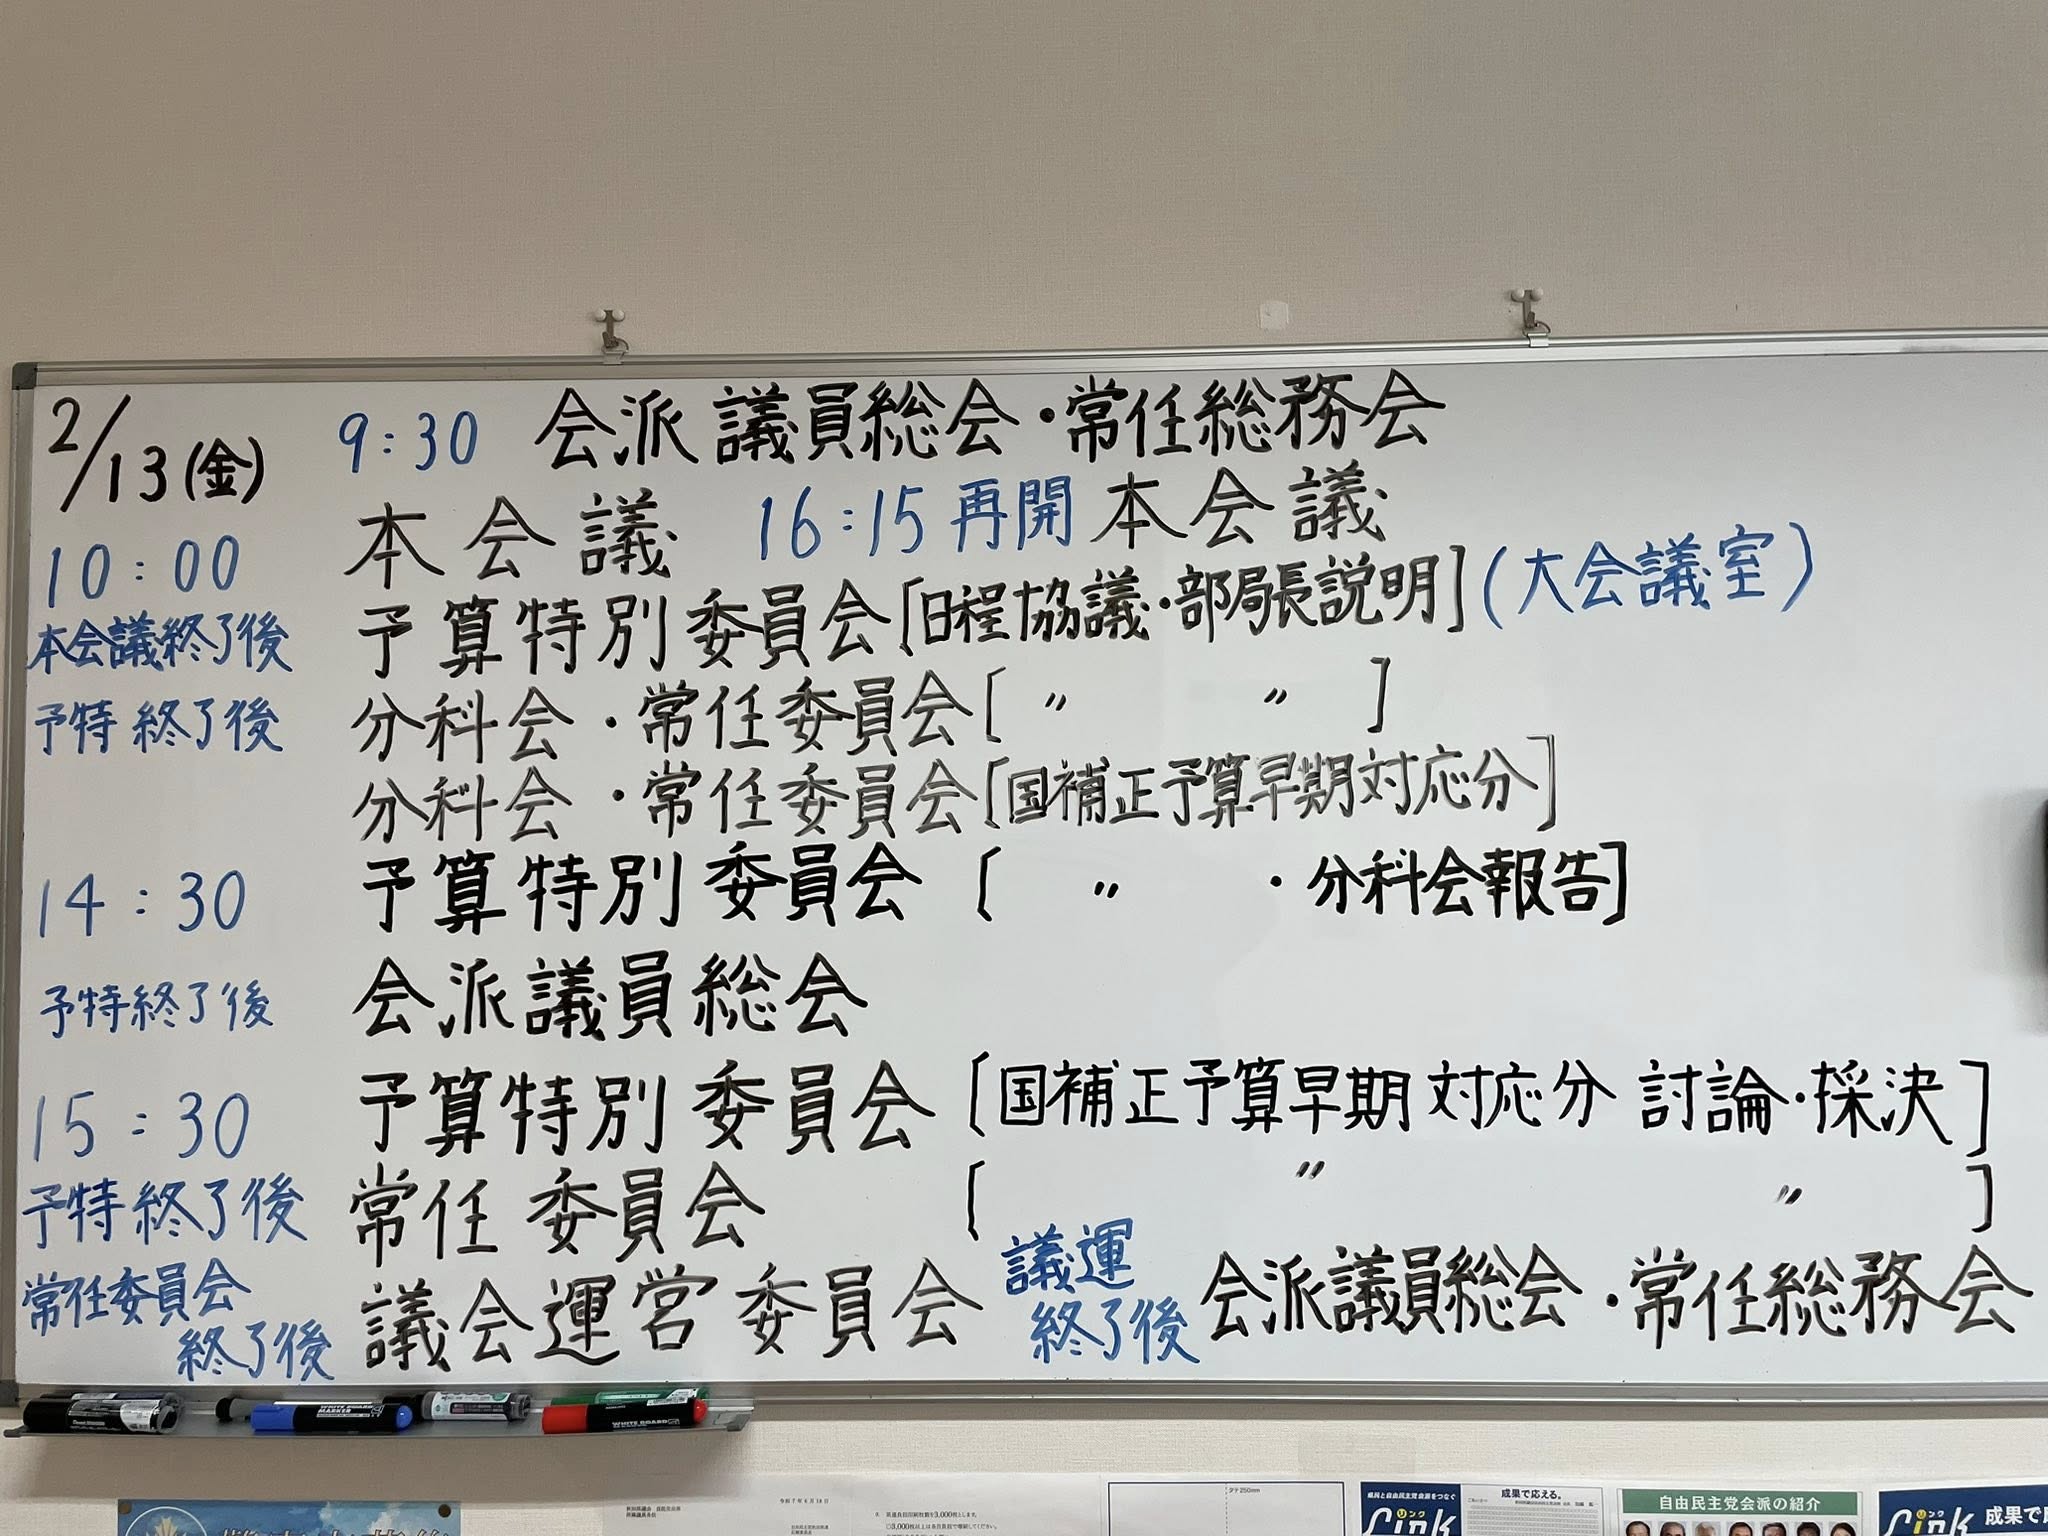 2/13(金) 9:30 会派議員総会・常任総務会
10:00 本会議 16:15再開 本会議
本会議終了後 予算特別委員会[日程協議・部局長説明](大会議室)
予特終了後 分科会・常任委員会[〃 〃]
分科会・常任委員会[国補正予算早期対応分]
14:30 予算特別委員会[〃・分科会報告]
予特終了後 会派議員総会
15:30 予算特別委員会[国補正予算早期対応分 討論・採決]
予特終了後 常任委員会[〃 〃]
常任委員会終了後 議会運営委員会 議運終了後 会派議員総会・常任総務会
WHITE BOARD MARKER
WHITE BOARD
令和7年6月18日
タテ250mm
県民と自由民主党会派をつなぐ
Link
リンク
成果で応える。
自由民主党会派の紹介
Link
リンク